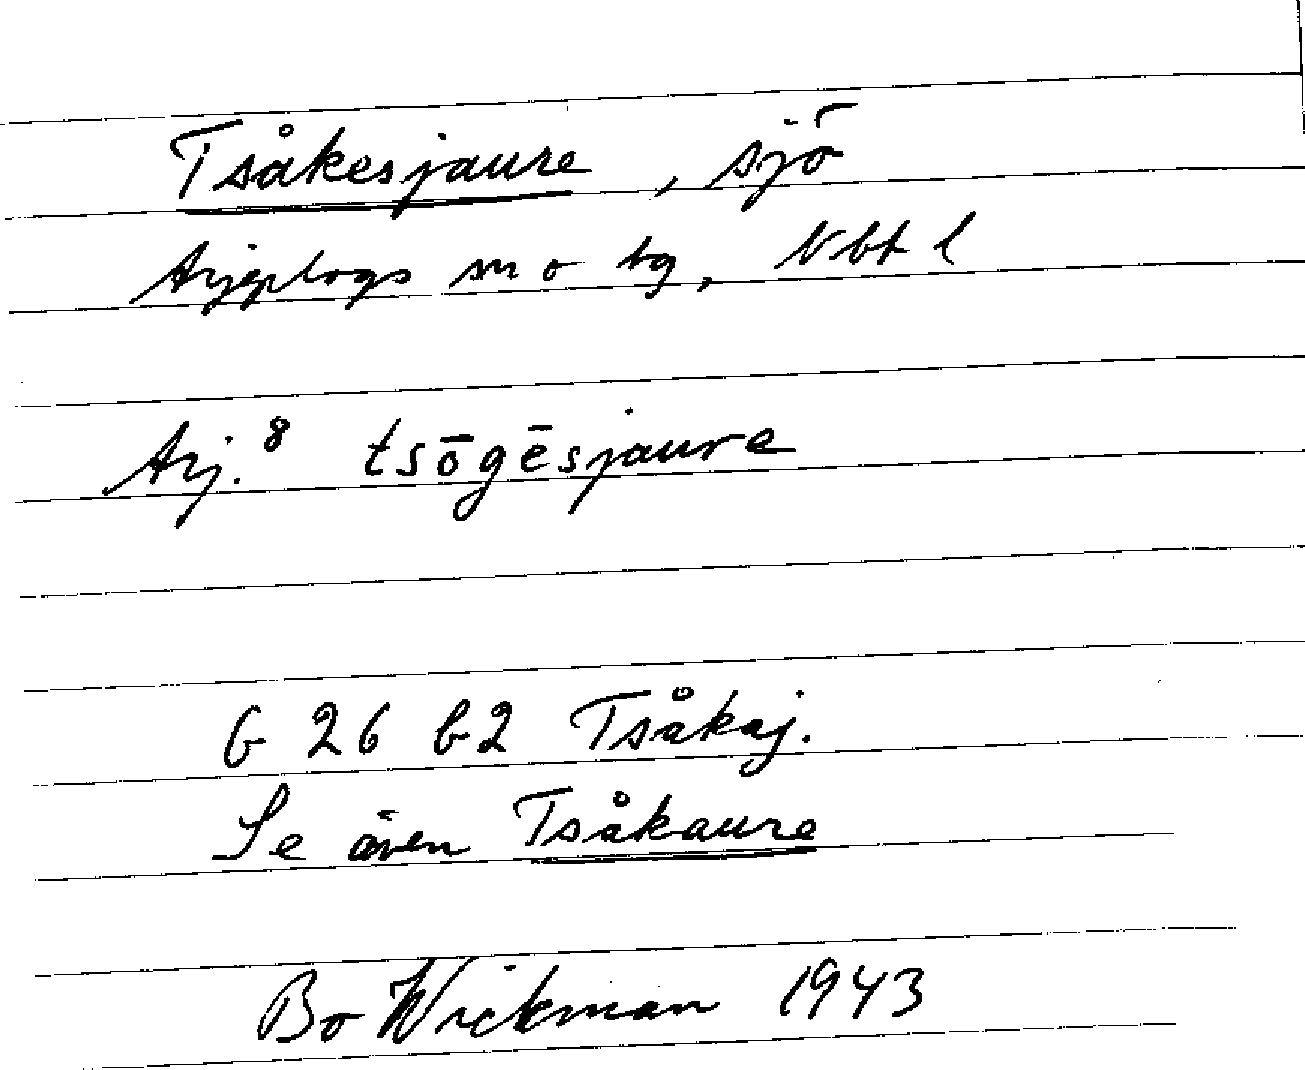 Tsåkesjaure, sjö
Arjeplogs sn o tg, Nbt l
Arj.⁸ tsōgēsjaure
G 26 b2 Tsåkaj.
Se även Tsåkaure
Bo Wickman 1943